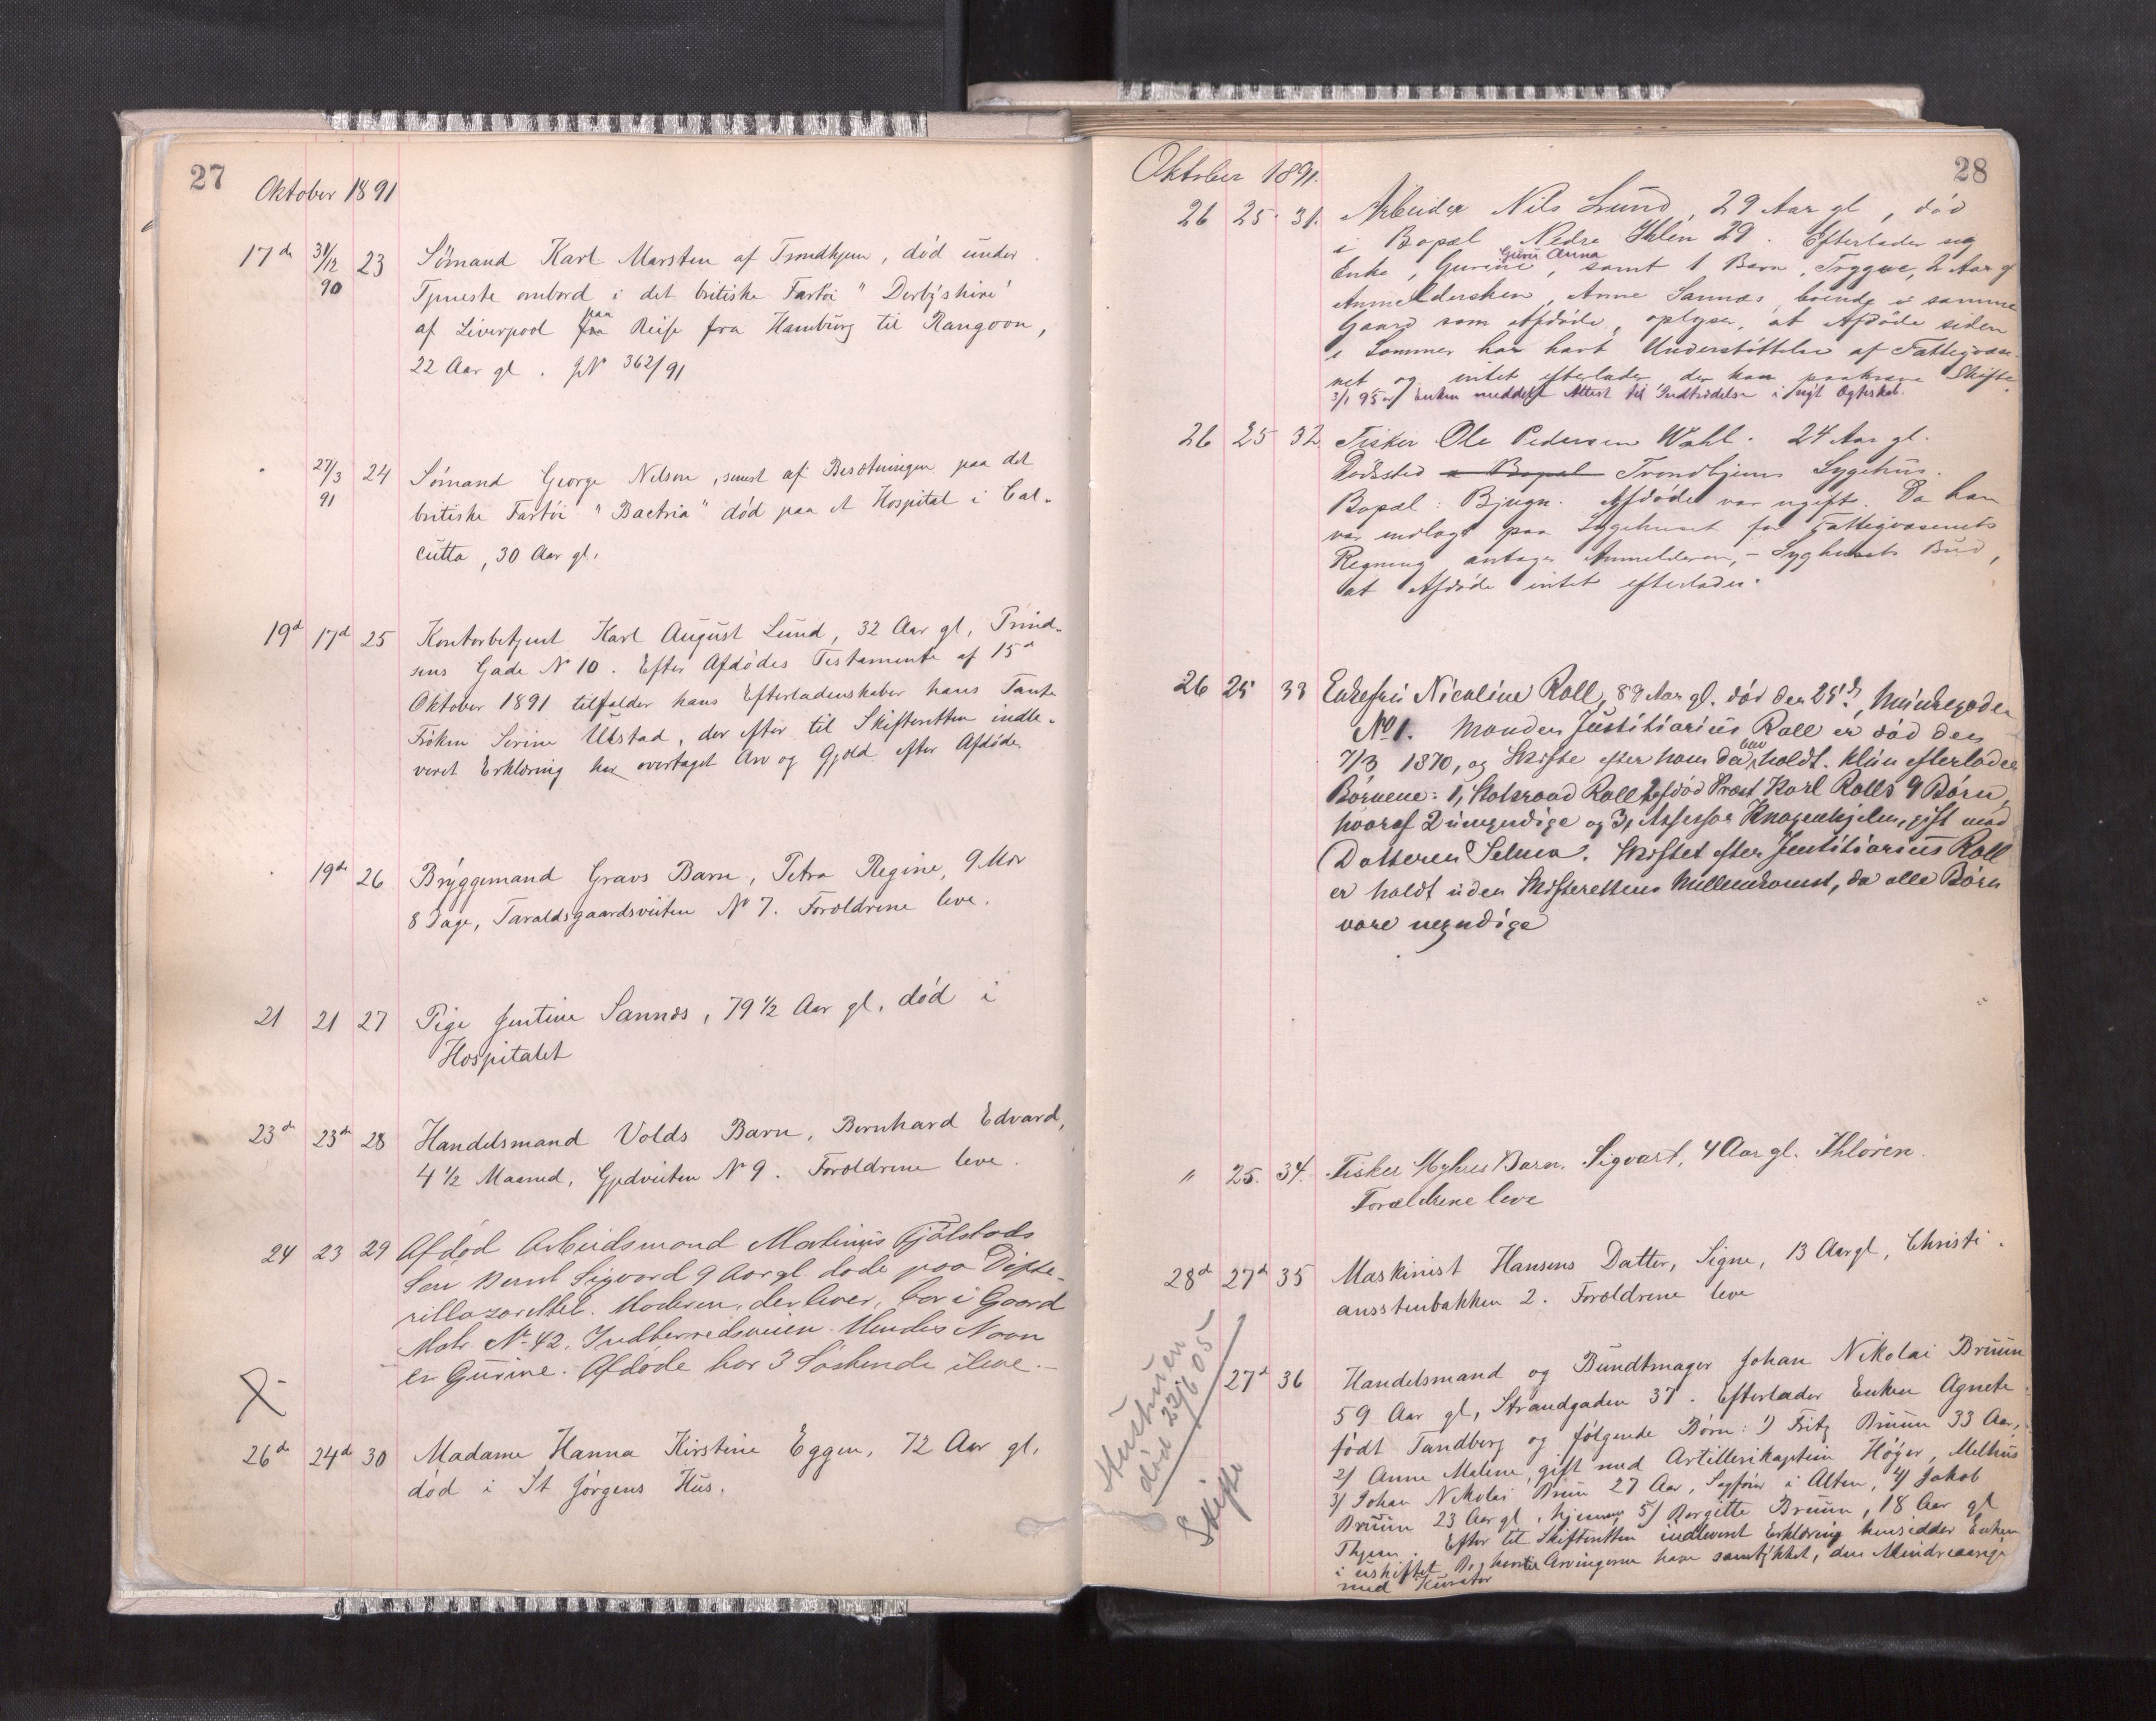 27
Oktober 1891
17de 31/12 90 23 Sømand Karl Marsten af Trondhjem, død under
Tjeneste ombord i det britiske Fartøi "Derbyshire"
af Liverpool fra paa Reise fra Hamburg til Rangoon,
22 Aar gl. JN 362/91
27/3 91 24 Sømand George Nelson, senest af Besætningen paa det
britiske Fartøi "Bactria" død paa et Hospital i Cal-
cutta, 30 Aar gl.
19d 17d 25 Kontorbetjent Karl August Lund, 32 Aar gl, Prind-
sens Gade No 10. Efter Afdødes Testamente af 15d
Oktober 1891 tilfalder hans Efterladenskaber hans Tante
Frøken Serine Ulstad, der efter til Skifteretten indle-
veret Erklæring har overtaget Arv og Gjæld efter Afdøde.
19de 26 Bryggemand Gravs Barn, Petra Regine, 9 Mdr
8 Dage, Taraldsgaardsveiten No 7. Forældrene leve.
21 21 27 Pige Jentine Sannæs, 79 1/2 Aar gl, død i
Hospitalet
23de 23de 28 Handelsmand Volds Barn, Bernhard Edvard,
4 1/2 Maaned, Gjedveiten No 9. Forældrene leve.
24 23 29 Afdød Arbeidsmand Martinus Fjølstads
Søn Bernt Sigvard 9 Aar gl døde paa Difte-
rillazarettet. Moderen, der lever, bor i Gaard
Matr No 42. Indherredsveien. Hendes Navn
er Gurine. Afdøde har 3 Søskende ilive.
26de 24de 30 Madame Hanna Kirstine Eggen, 72 Aar gl,
død i St Jørgens Hus.
28
Oktober 1891.
26 25 31. Arbeider Nils Lund, 29 Aar gl, død
i Bopæl Nedre Ihlen 29. Efterlader sig
Guru Anna
Enke, Gurine, samt 1 Barn, Tryggve, 2 Aar gl
Anmeldersken, Anne Sannæs, boende i samme
Gaard som Afdøde, oplyser, at Afdøde siden
i Sommer har havt Understøttelse af Fattigvæse-
net og intet efterlader der kan paakræve Skifte.
3/1 95 er Enken meddelt Attest til Indtrædelse i nyt Ægteskab.
26 25 32. Fisker Ole Pedersen Wahl. 24 Aar gl.
Dødssted a Bopæl Trondhjems Sygehus.
Bopæl: Bjugn. Afdøde var ugift. Da han
var indlagt paa Sygehuset for Fattigvæsenets
Regning antager Anmelderen, - Sygehusets Bud,
at Afdøde intet efterlader.
26 25 33 Enkefru Nicoline Roll, 89 Aar gl. død den 25de, Munkegaden
No 1. Manden Justitiarius Roll er død den
7/3 1870, og Skifte efter ham da blev holdt. Hun efterlader
Børnene: 1, Statsraad Roll 2, afdød Præst Karl Rolls 9 Børn,
hvoraf 2 umyndige og 3, Assessor Knagenhjelm, gift med
Datteren Selma. Skiftet efter Justitiarius Roll
er holdt uden Skifterettens Mellemkomst, da alle Børn
vare myndige
" 25. 34. Fisker Myhres Barn, Sigvart, 4 Aar gl. Ihløren.
Forældrene leve
28d 27d 35 Maskinist Hansens Datter, Signe, 13 Aar gl, Christi-
ansstenbakken 2. Forældrene leve
27d 36 Handelsmand og Bundtmager Johan Nikolai Bruun
59 Aar gl, Strandgaden 37. Efterlader Enken Agnete
født Tandberg og følgende Børn: 1) Fritz Bruun 33 Aar,
2) Anne Malene, gift med Artillerikaptein Høyer, Melhus
3) Johan Nikolai Bruun 27 Aar, Sagfører i Alten, 4) Jakob
Bruun 23 Aar gl, hjemme, 5) Borgitte Bruun, 18 Aar gl
Thjem. Efter til Skifteretten indleveret Erklæring hensidder Enken
i uskiftet Bo, hvortil Arvingerne have samtykket, den Mindreaarige
med Kurator
Hustruen
død 22/6 05
Skifte